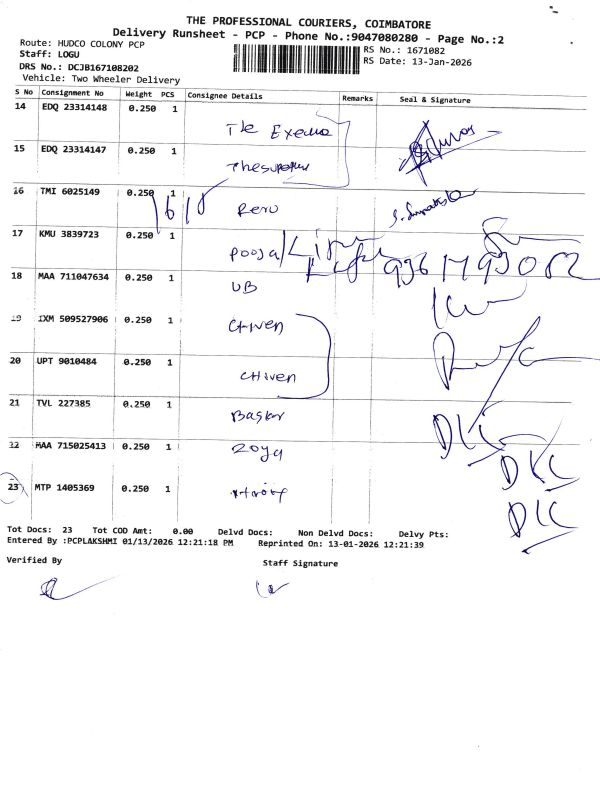 THE PROFESSIONAL COURIERS, COIMBATORE
Delivery Runsheet - PCP - Phone No.:9047080280 - Page No.:2
Route: HUDCO COLONY PCP
Staff: LOGU
DRS No.: DCJB167108202
Vehicle: Two Wheeler Delivery
RS No.: 1671082
RS Date: 13-Jan-2026
S No Consignment No Weight PCS Consignee Details Remarks Seal & Signature
14 EDQ 23314148 0.250 1 The
15 EDQ 23314147 0.250 1
16 TMI 6025149 0.250 1
17 KMU 3839723 0.250 1 Pooja
18 MAA 711047634 0.250 1 UB
19 IXM 509527906 0.250 1 CHiven
20 UPT 9010484 0.250 1 CHiven
21 TVL 227385 0.250 1 Baskar DKC
22 MAA 715025413 0.250 1 Zoya DKC
23 MTP 1405369 0.250 1 DKC
Tot Docs: 23 Tot COD Amt: 0.00 Delvd Docs: Non Delvd Docs: Delvy Pts:
Entered By :PCPLAKSHMI 01/13/2026 12:21:18 PM Reprinted On: 13-01-2026 12:21:39
Verified By Staff Signature